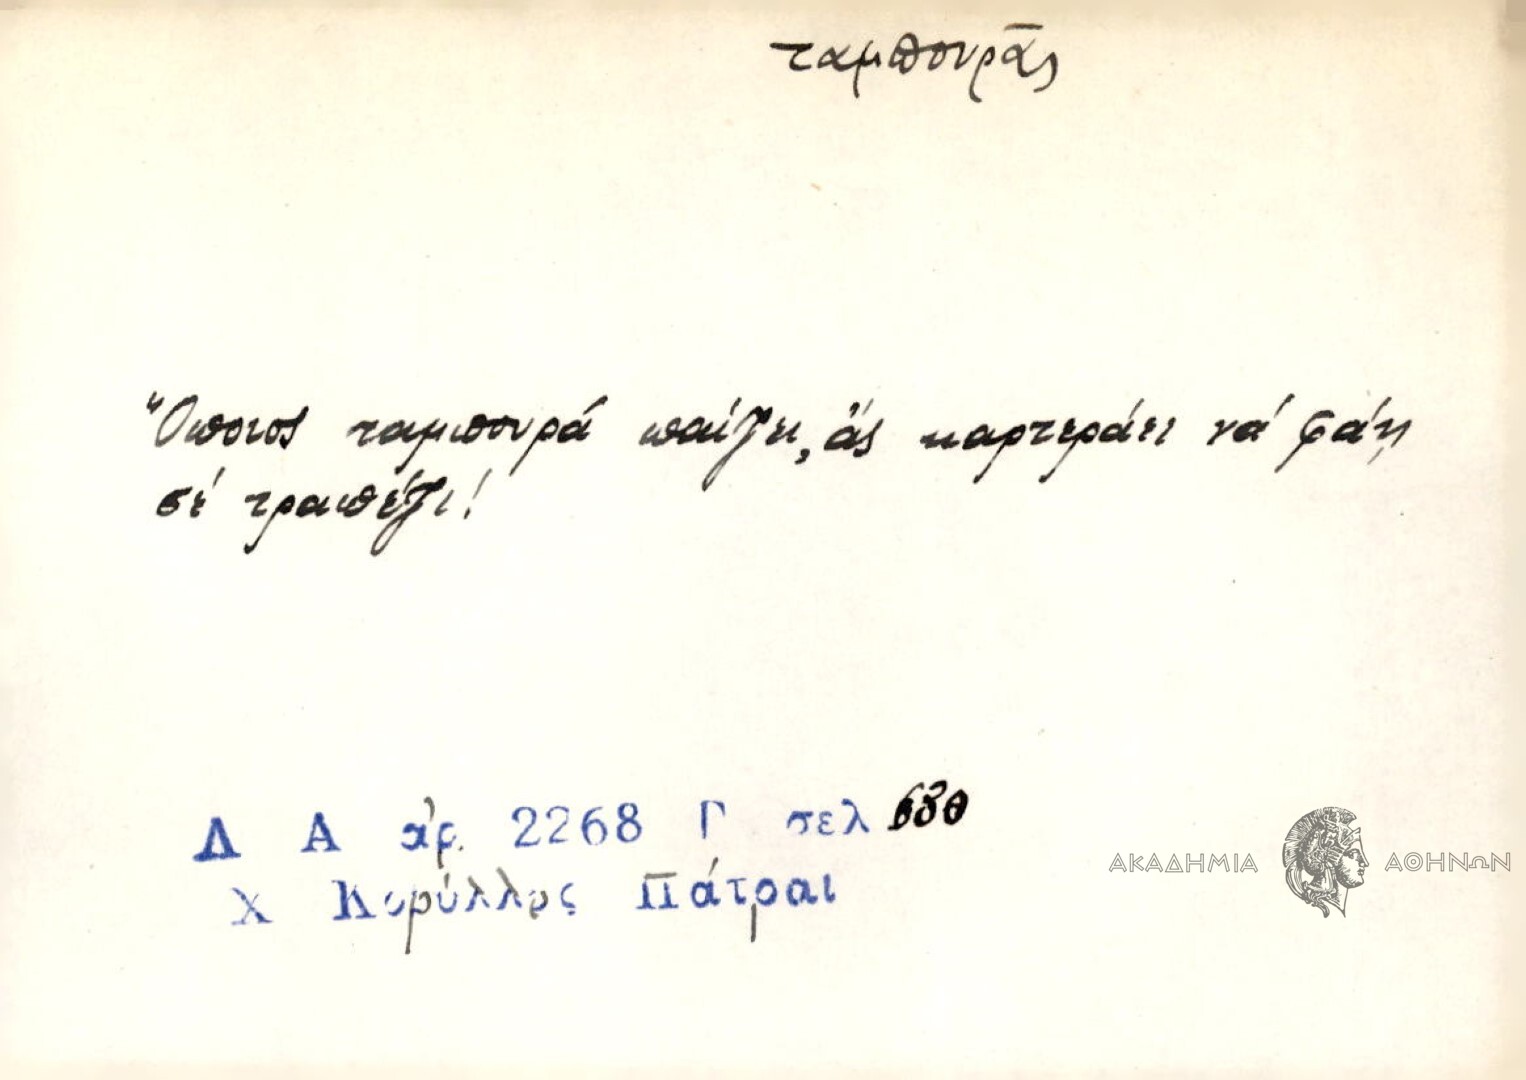 ταμπουρᾶς
Ὅποιος ταμπουρά παίζει, ἄς καρτεράει νά φάῃ
σέ τραπέζι!
Δ Α ἀρ. 2268 Γ σελ
Χ Κορύλλος Πάτραι
ΑΚΑΔΗΜΙΑ ΑΘΗΝΩΝ